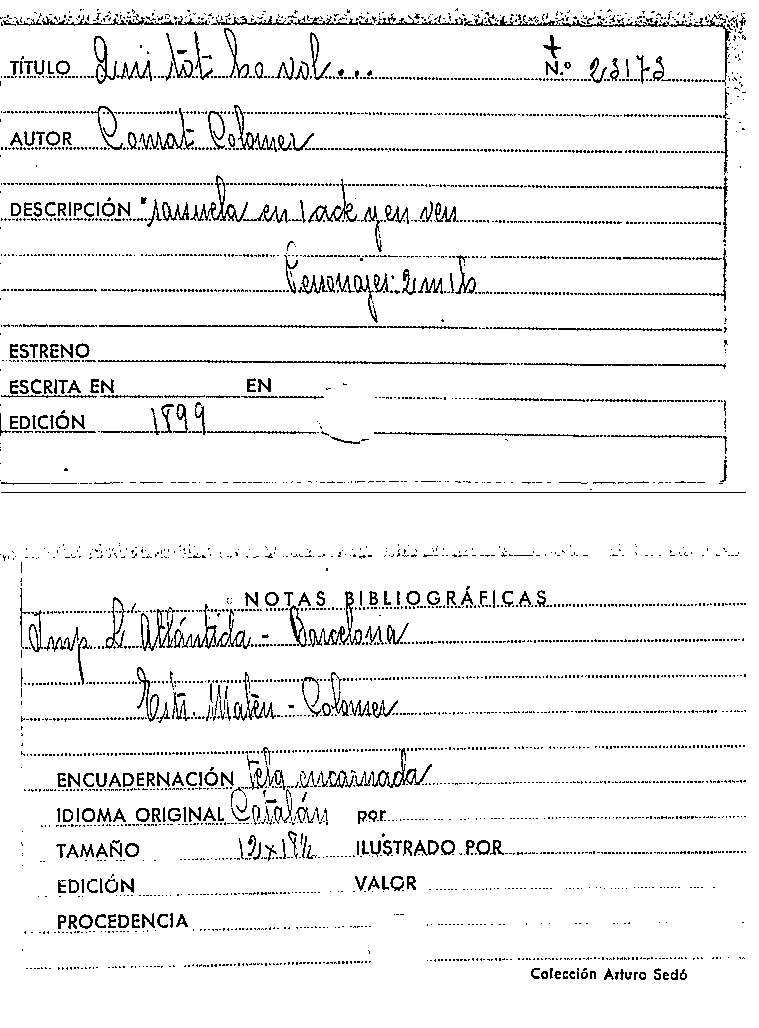 TÍTULO Qui tot ho vol... N.º 23173
AUTOR Conrat Colomer
DESCRIPCIÓN "sarsuela en 1 acte y en vers
Personajes: 2 m 1 h
ESTRENO
ESCRITA EN EN
EDICIÓN 1899
NOTAS BIBLIOGRÁFICAS
Imp L'Atlántida - Barcelona
Estr. Mateu - Colomer
ENCUADERNACIÓN tela encarnada
IDIOMA ORIGINAL Catalán por
TAMAÑO 12x18½ ILUSTRADO POR
EDICIÓN VALOR
PROCEDENCIA
Colección Arturo Sedó